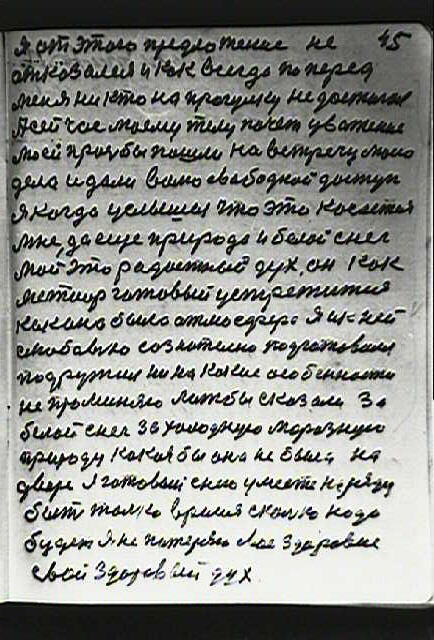 45
я от этого предложение не
отказался и как всегда поперед
меня никто на прогулку не достался
А сейчас моему телу почет уважение
моей прозьбы пошли на встречу моего
дела и дали само свободной доступ
я когда услышал что это касается
мне, да еще природа и белой снег
мой это радостный дух, он как
метиор готовый устремится
какана была атмосфера Я и к ней
сознателно подготовился
подружил ни на какие особенности
не променяю лишбы сказали за
белой снег за холодную морозную
природу какая бы она не была на
дворе Я готовый снею уместе наряду
быть только время сколко надо
будет Я не потеряю свое здоровие
свой здоровый дух